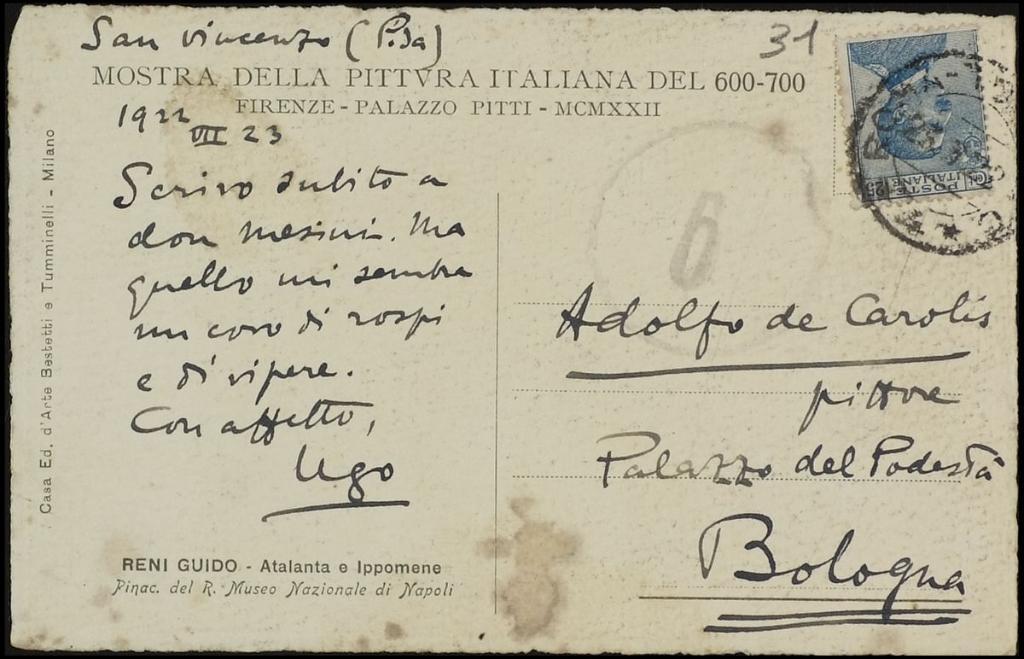 San Vincenzo (Pisa)
31
MOSTRA DELLA PITTVRA ITALIANA DEL 600-700
FIRENZE - PALAZZO PITTI - MCMXXII
1922
VII 23
Scrivo subito a
don Mesini. Ma
quello mi sembra
un covo di rospi
e di vipere.
Con affetto,
Ugo
RENI GUIDO - Atalanta e Ippomene
Pinac. del R. Museo Nazionale di Napoli
Casa Ed. d'Arte Bestetti e Tumminelli - Milano
POSTE
ITALIANE
25
6
Adolfo de Carolis
pittore
Palazzo del Podestà
Bologna